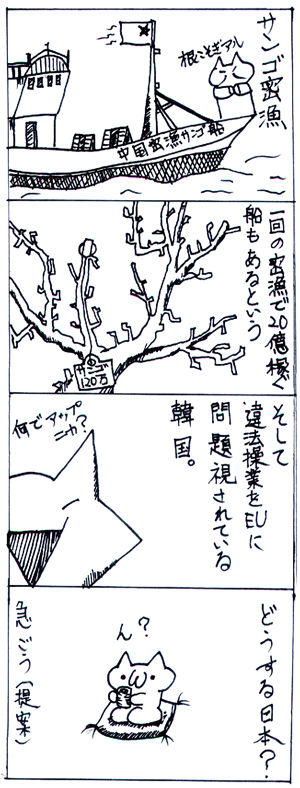 サンゴ密漁
根こそぎアル
中国密漁サンゴ船
一回の密漁で20億稼ぐ
船もあるという
サンゴ
120万
そして
違法操業をEUに
問題視されている
韓国。
何でアップ
ニカ?
どうする日本?
ん?
急ごう(提案)